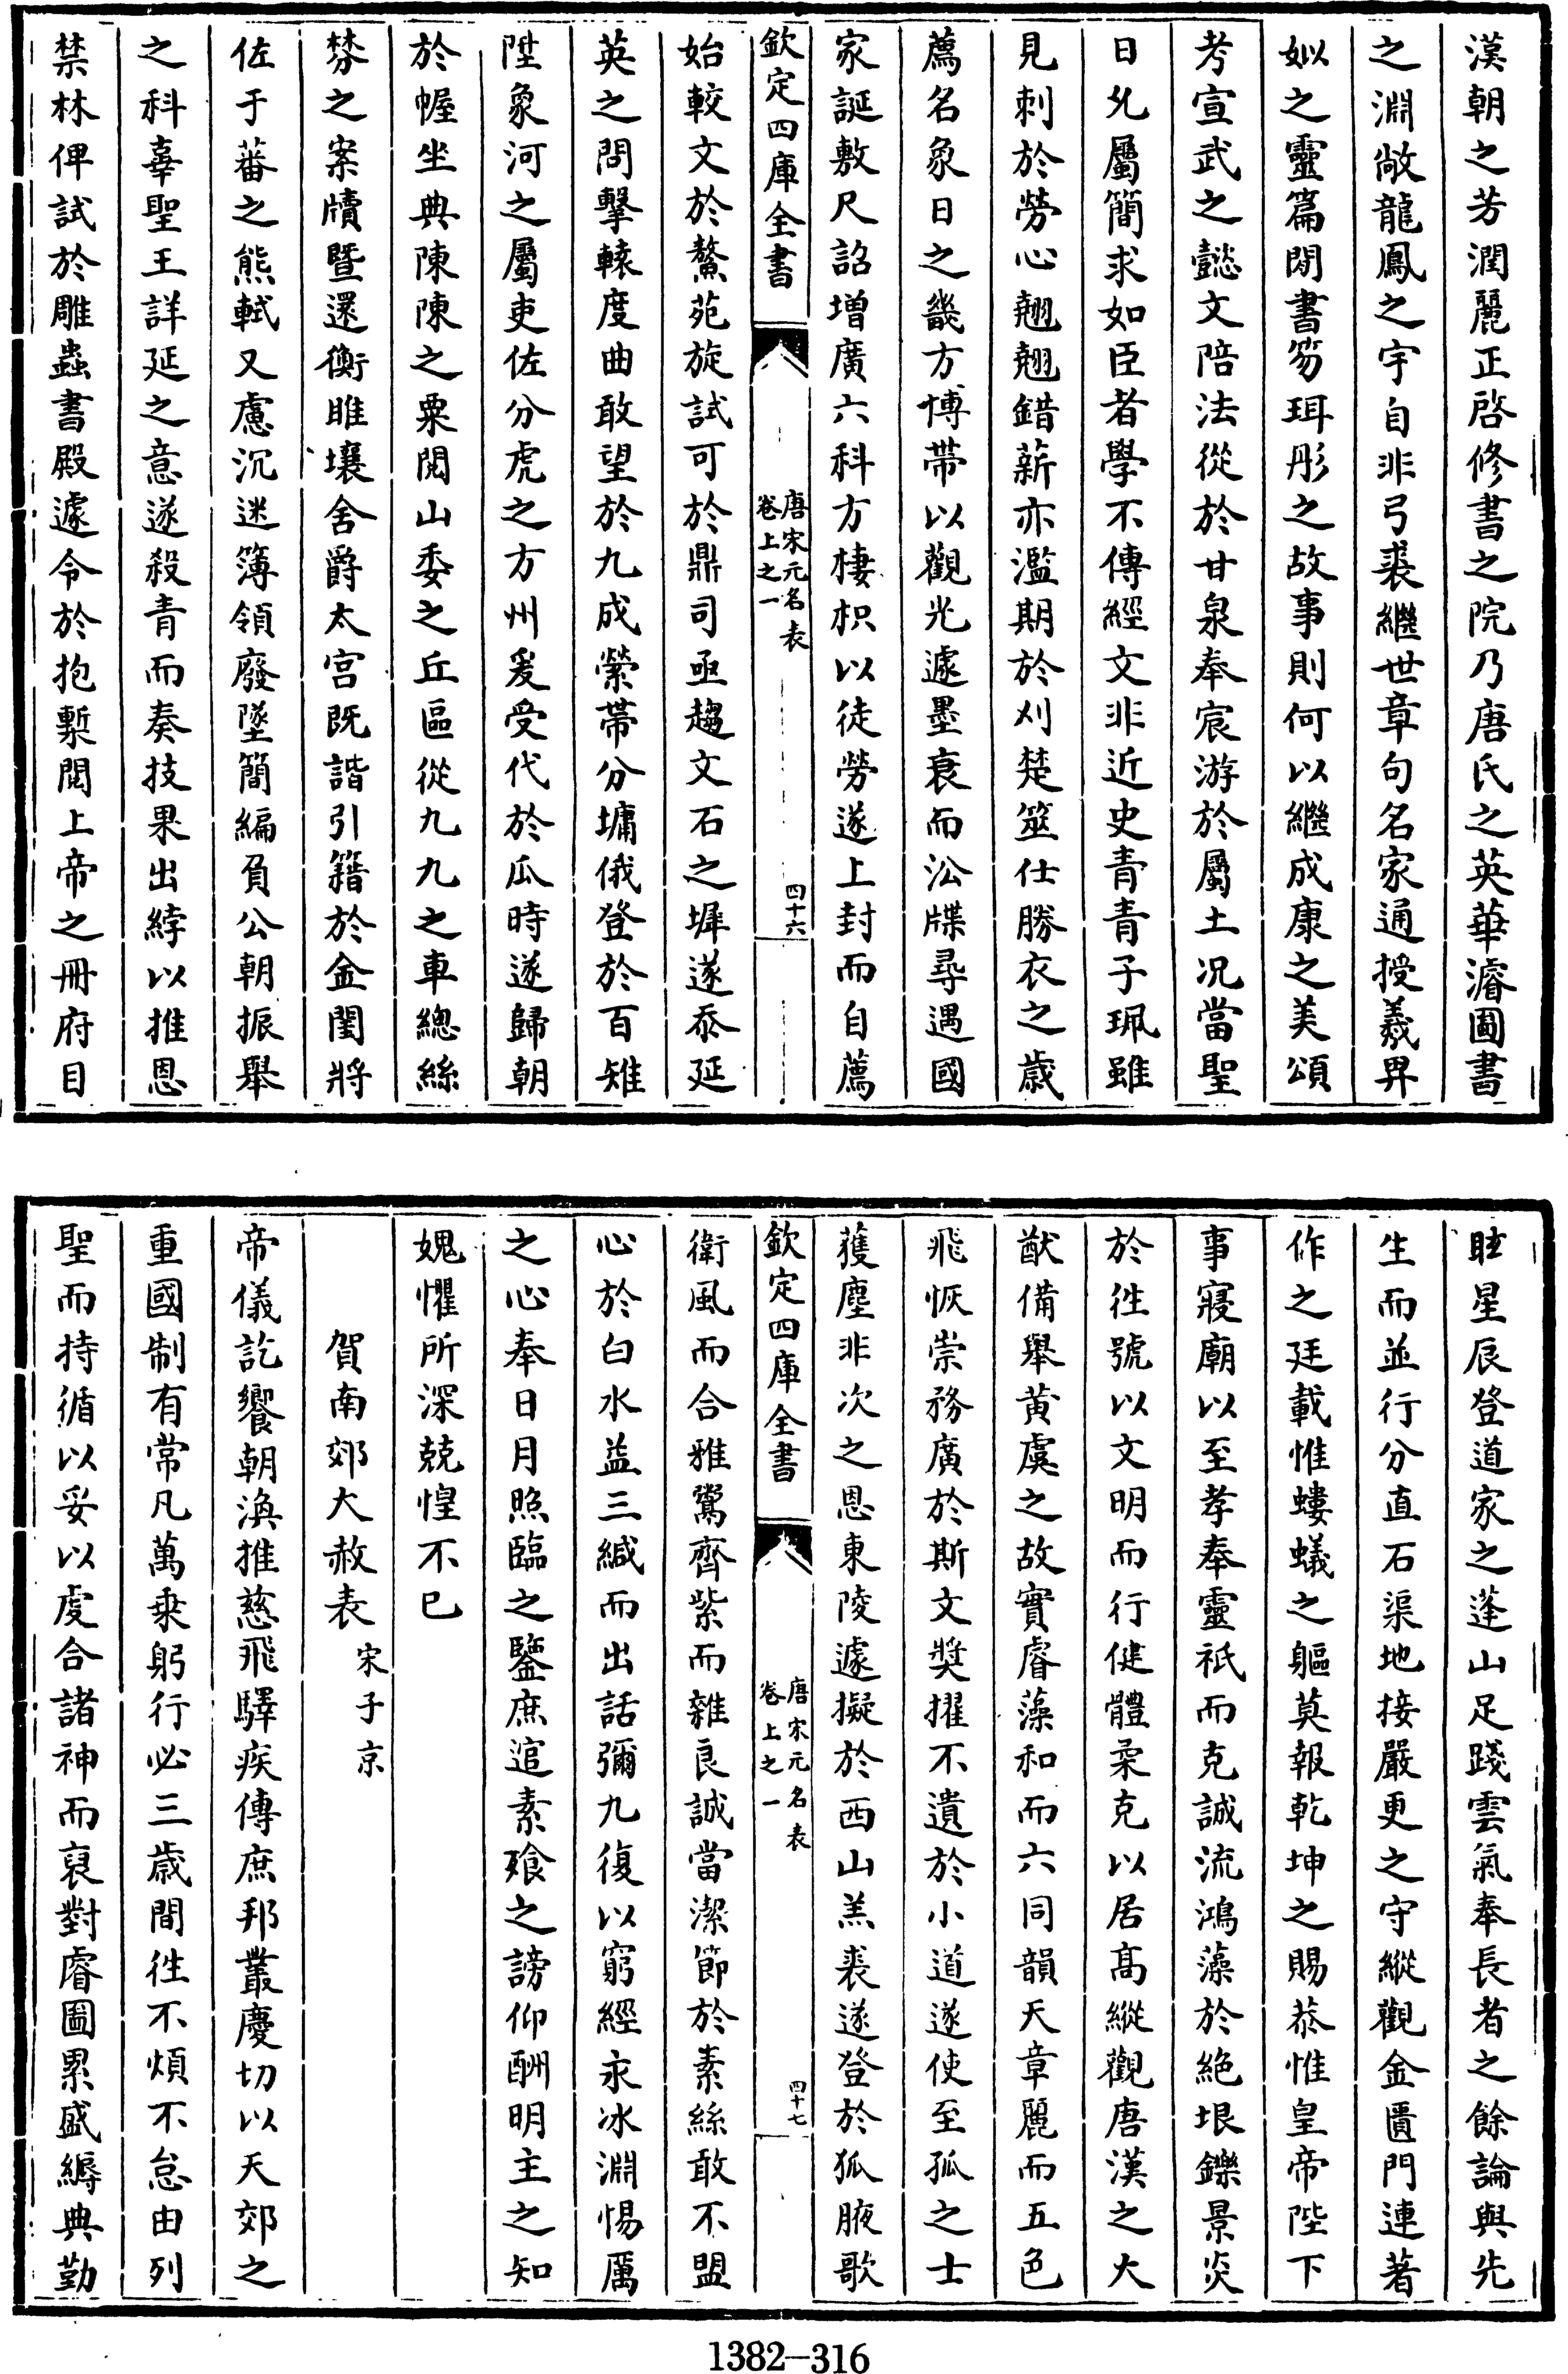 漢朝之芳潤麗正啓修書之院乃唐氏之英華濬圖書
之淵敞龍鳳之宇自非弓裘繼世章句名家通授羲畀
姒之靈篇閱書笏珥彤之故事則何以繼成康之美頌
考宣武之懿文陪法從於甘泉奉宸游於屬土况當聖
日允屬簡求如臣者學不傳經文非近史青青子珮雖
見刺於勞心翹翹錯薪亦濫期於刈楚筮仕勝衣之歳
薦名象日之畿方博帶以觀光遽墨衰而㳂牒尋遇國
家誕敷尺詔增廣六科方棲枳以徒勞遂上封而自薦
欽定四庫全書
唐宋元名表
卷上之一
四十六
始較文於鰲苑旋試可於鼎司亟趨文石之墀遂忝延
英之問擊轅度曲敢望於九成縈帶分墉俄登於百雉
陞象河之屬吏佐分虎之方州爰受代於瓜時遂歸朝
於幄坐典陳陳之粟閱山委之丘區從九九之車總絲
棼之案牘暨還衡睢壤舍爵太宮既諧引籍於金閨將
佐于蕃之熊軾又慮沉迷簿領廢墜簡編負公朝振舉
之科辜聖王詳延之意遂殺青而奏技果出綍以推恩
禁林俾試於雕蟲書殿遽令於抱槧閱上帝之冊府目
眩星辰登道家之蓬山足踐雲氣奉長者之餘論與先
生而並行分直石渠地接嚴更之守縱觀金匱門連著
作之廷載惟螻蟻之軀莫報乾坤之賜恭惟皇帝陛下
事寢廟以至孝奉靈祇而克誠流鴻藻於絶垠鑠景炎
於徃號以文明而行健體柔克以居高縱觀唐漢之大
猷備舉黃虞之故實睿藻和而六同韻天章麗而五色
飛恢崇務廣於斯文奬擢不遺於小道遂使至孤之士
獲塵非次之恩東陵遽擬於西山羔裘遂登於狐腋歌
欽定四庫全書
唐宋元名表
卷上之一
四十七
衛風而合雅鴽齊紫而雜良誠當潔節於素絲敢不盟
心於白水益三緘而出話彌九復以窮經永冰淵惕厲
之心奉日月照臨之鑒庶逭素飱之謗仰酬明主之知
媿懼所深兢惶不已
賀南郊大赦表　宋子京
帝儀訖饗朝渙推慈飛驛疾傳庶邦叢慶切以天郊之
重國制有常凡萬乗躬行必三歳間徃不煩不怠由列
聖而持循以妥以虔合諸神而裒對睿圖累盛縟典勤
1382-316